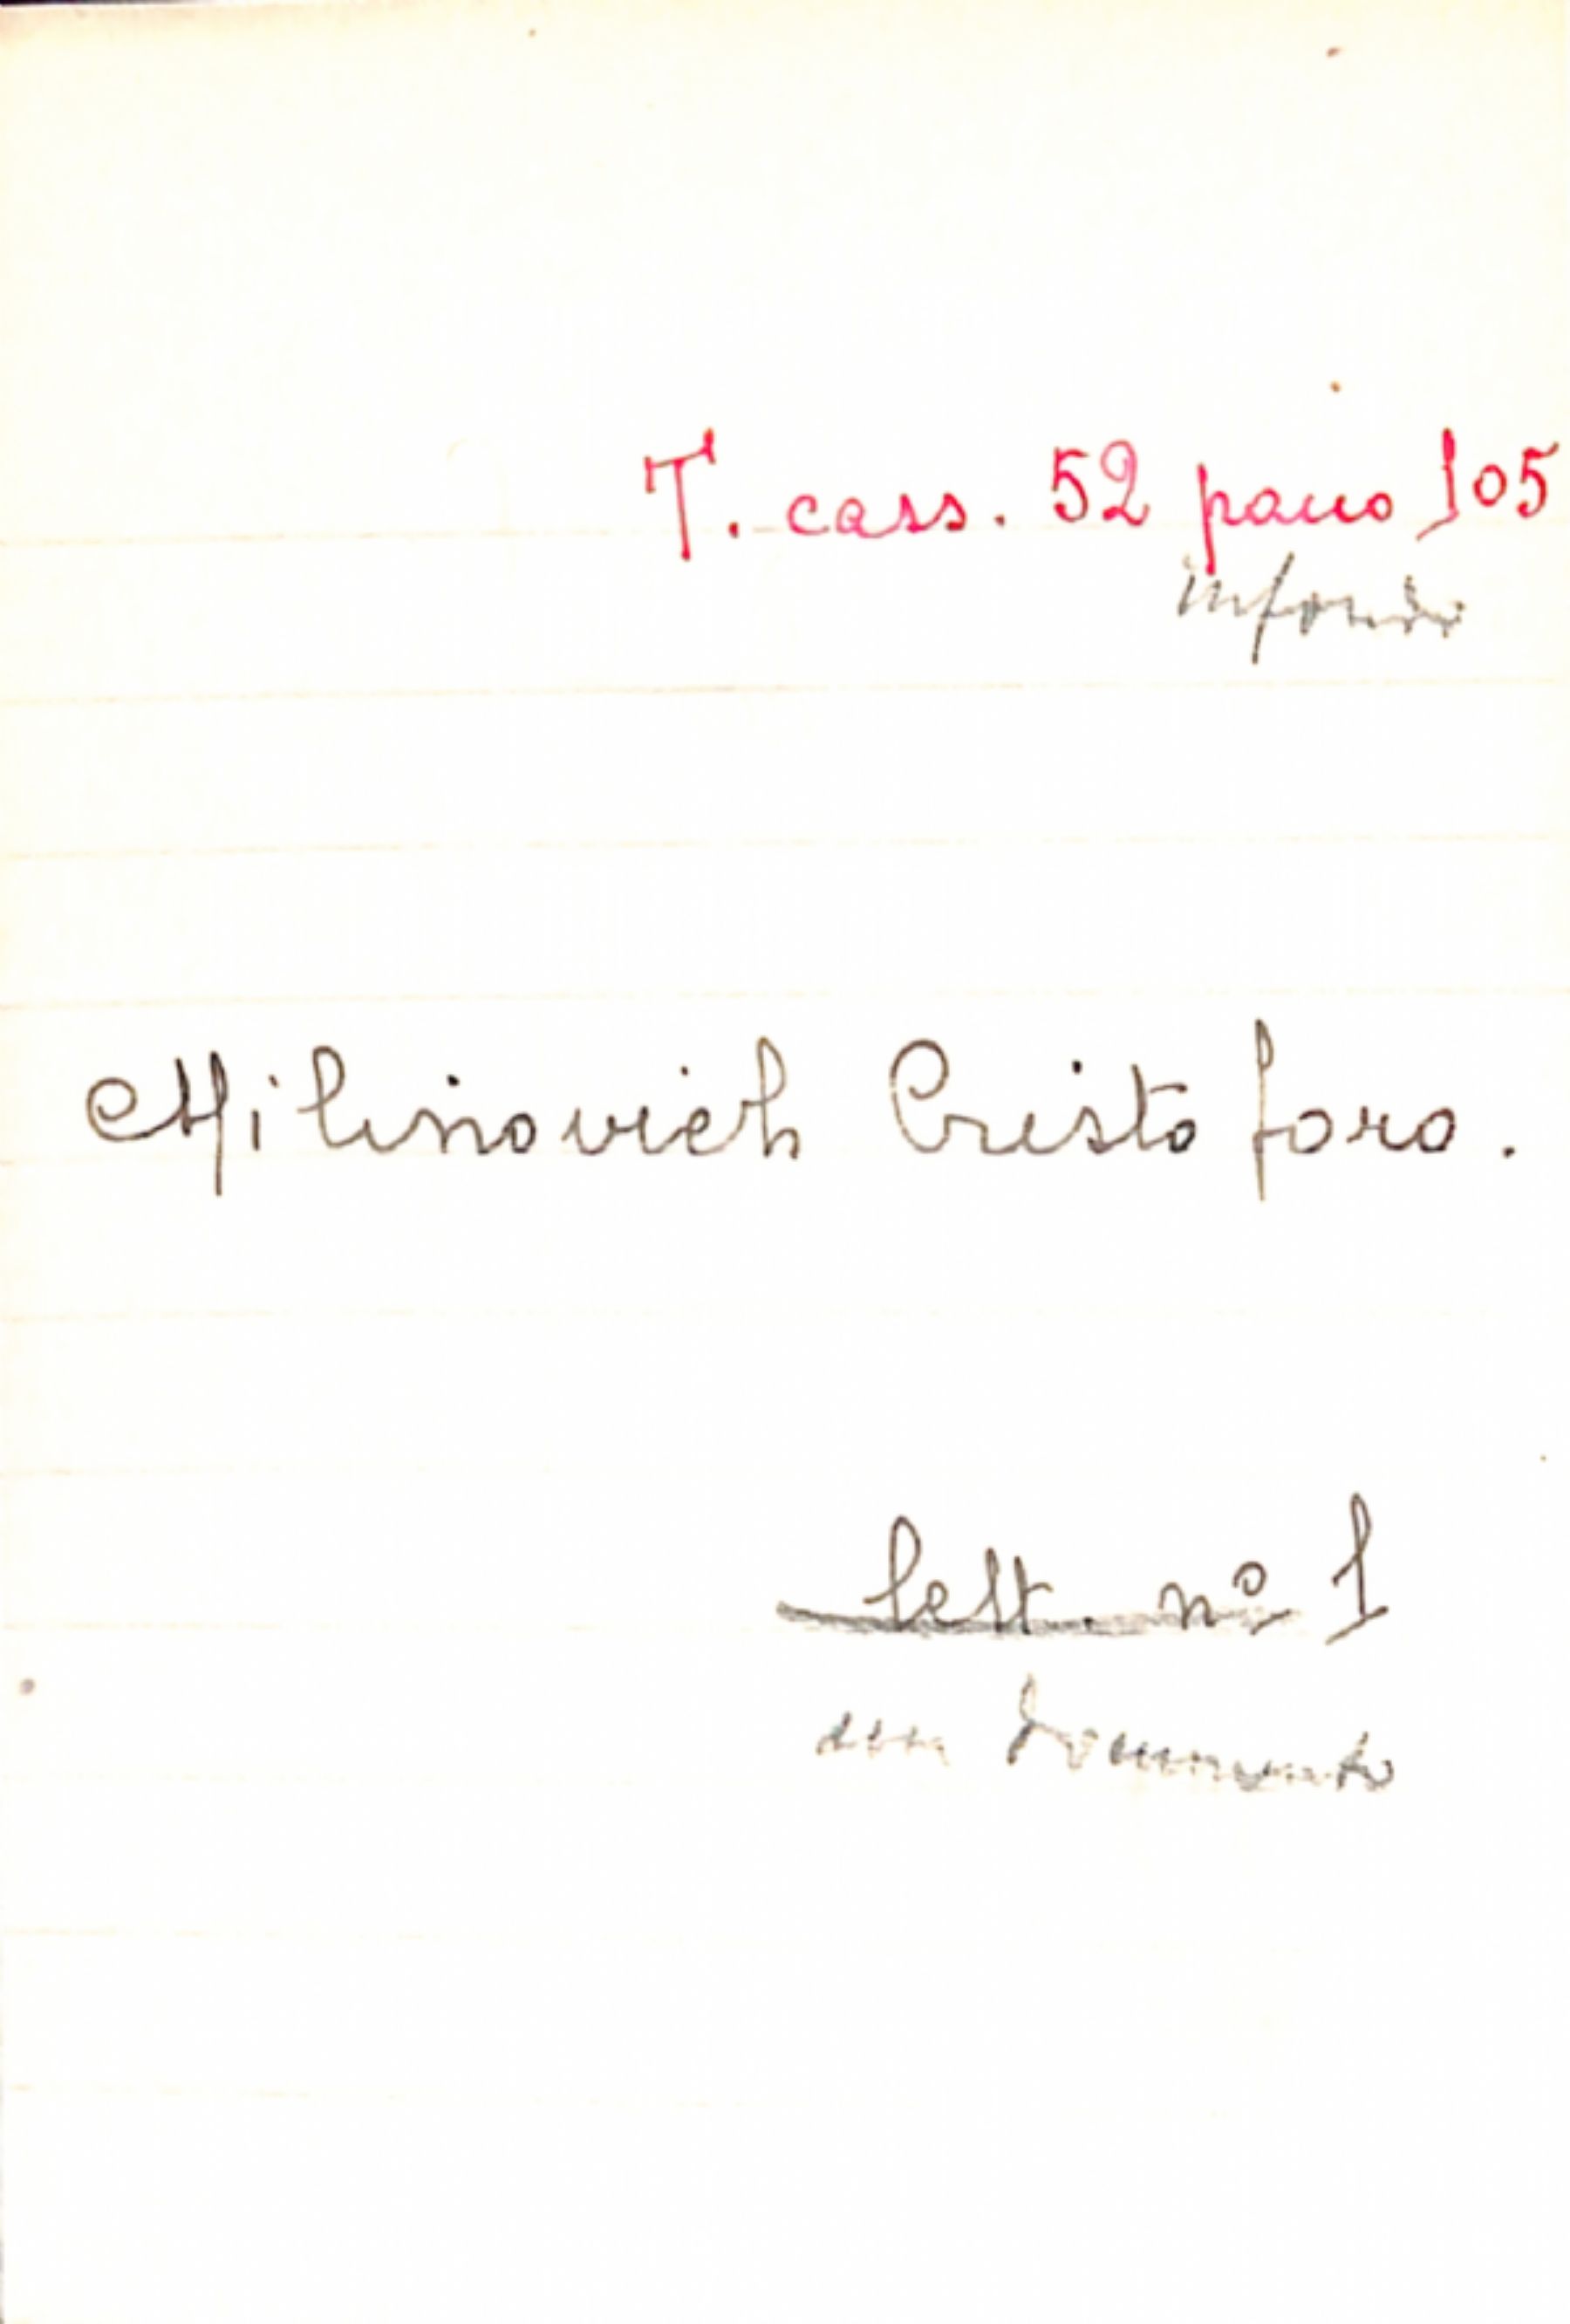 T. cass. 52 pacco 105
in fondo
Milinovich Cristoforo.
lett. nº 1
un documento